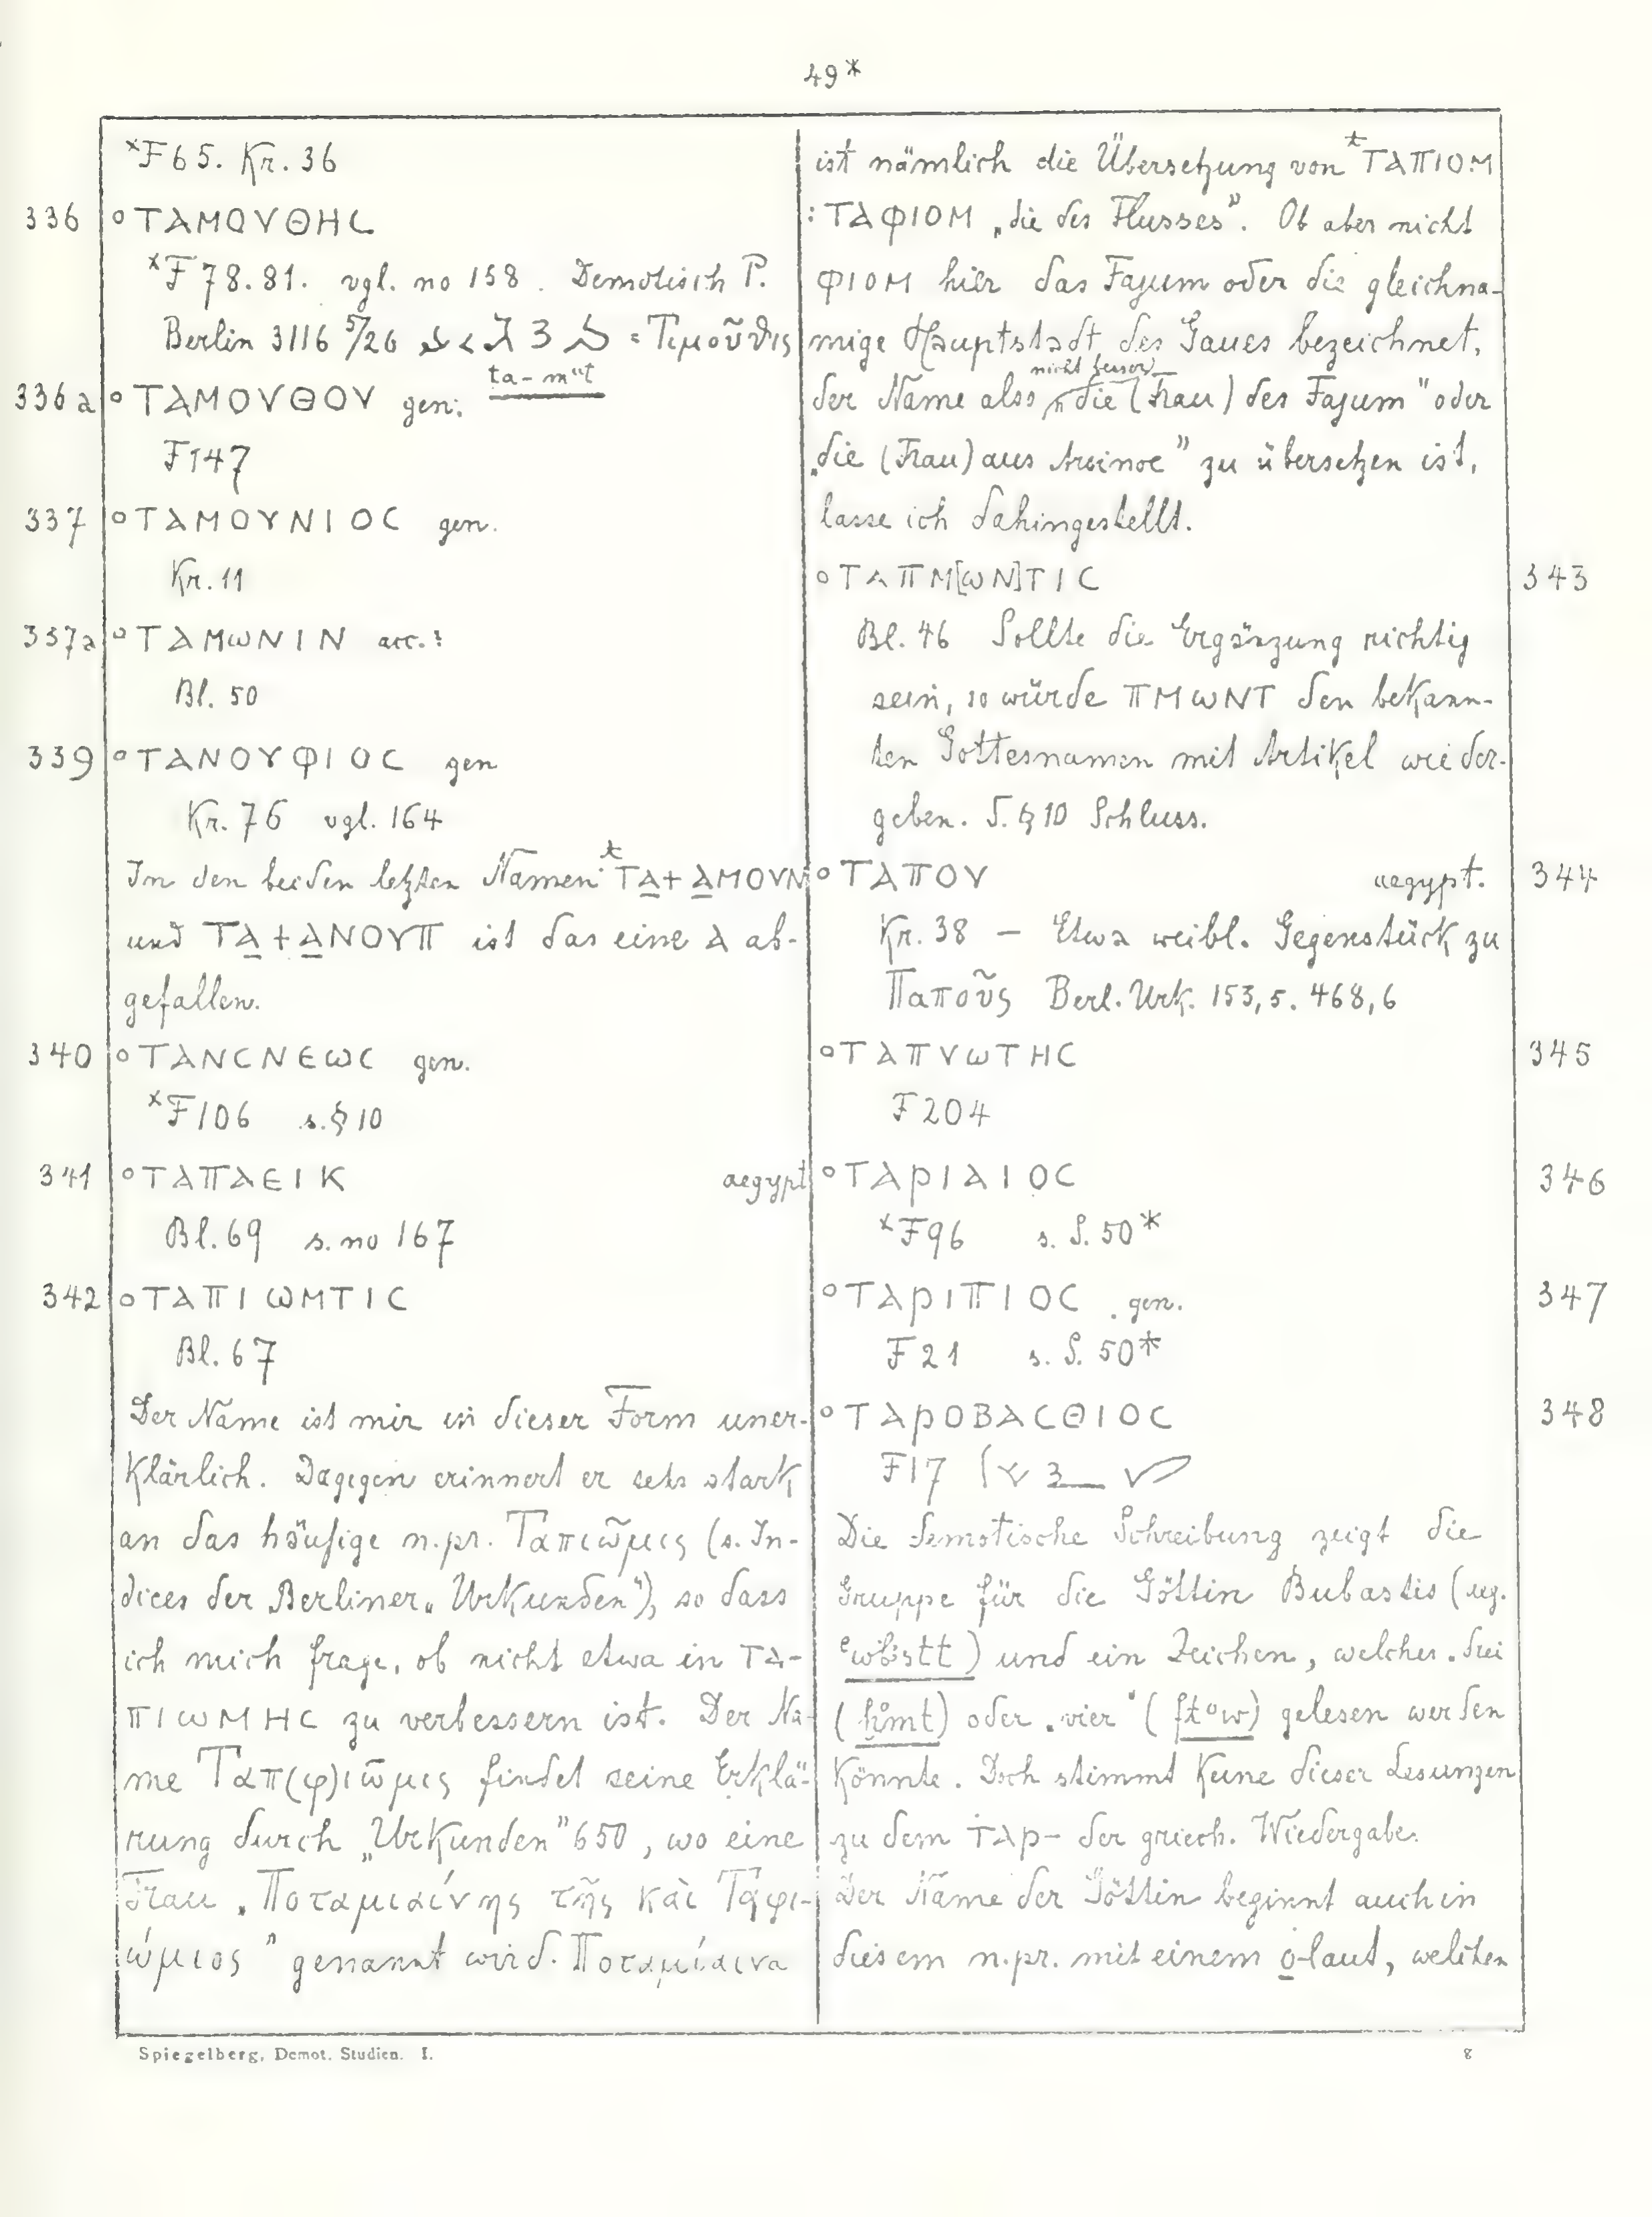 49*
*F 65. Kr. 36
336 ° ΤΑΜΟΥΘΗC
*F 78. 81. vgl. no 158. Demotisch P.
Berlin 3116 5/26 = Τιμοῦθις
ta-mwt
336a ° ΤΑΜΟΥΘΟΥ gen.
F 147
337 ° ΤΑΜΟΥΝΙΟC gen.
Kr. 11
337a ° ΤΑΜωΝΙΝ acc.?
Bl. 50
339 ° ΤΑΝΟΥΦΙΟC gen
Kr. 76 vgl. 164
In den beiden letzten Namen *ΤΑ + ΑΜΟΥΝ
und ΤΑ + ΑΝΟΥΠ ist das eine Α ab-
gefallen.
340 ° ΤΑΝCΝΕωC gen.
*F 106 s. § 10
341 ° ΤΑΠΑΕΙΚ aegypt
Bl. 69 s. no 167
342 ° ΤΑΠΙωΜΤΙC
Bl. 67
Der Name ist mir in dieser Form uner-
klärlich. Dagegen erinnert er sehr stark
an das häufige n.pr. Ταπιῶμις (s. In-
dices der Berliner „Urkunden"), so dass
ich mich frage, ob nicht etwa in ΤΑ-
ΠΙωΜΗC zu verbessern ist. Der Na-
me Ταπ(φ)ιῶμις findet seine Erklä-
rung durch „Urkunden" 650, wo eine
Frau „Ποταμιαίνης τῆς καὶ Ταφι-
ώμιος" genannt wird. Ποταμίαινα
ist nämlich die Übersetzung von *ΤΑΠΙΟΜ
: ΤΑΦΙΟΜ „die des Flusses". Ob aber nicht
ΦΙΟΜ hier das Fajum oder die gleichna-
mige Hauptstadt des Gaues bezeichnet,
nicht besser
der Name also „die (Frau) des Fajum" oder
„die (Frau) aus Arsinoe" zu übersetzen ist,
lasse ich dahingestellt.
° ΤΑΠΜ[ωΝ]ΤΙC 343
Bl. 46 Sollte die Ergänzung richtig
sein, so würde ΠΜωΝΤ den bekann-
ten Gottesnamen mit Artikel wieder-
geben. S. § 10 Schluss.
° ΤΑΠΟΥ aegypt. 344
Kr. 38 — Etwa weibl. Gegenstück zu
Παποῦς Berl. Urk. 153,5. 468,6
° ΤΑΠΥωΤΗC 345
F 204
° ΤΑΡΙΑΙΟC 346
*F 96 s. S. 50*
° ΤΑΡΙΠΙΟC gen. 347
F 21 s. S. 50*
° ΤΑΡΟΒΑCΘΙΟC 348
F 17
Die demotische Schreibung zeigt die
Gruppe für die Göttin Bubastis (ug.
) und ein Zeichen, welches „drei
(ḫmt) oder „vier" (ftow) gelesen werden
könnte. Doch stimmt keine dieser Lesungen
zu dem ΤΑΡ- der griech. Wiedergabe.
Der Name der Göttin beginnt auch in
diesem n.pr. mit einem o-laut, welchen
Spiegelberg, Demot. Studien. I. 8